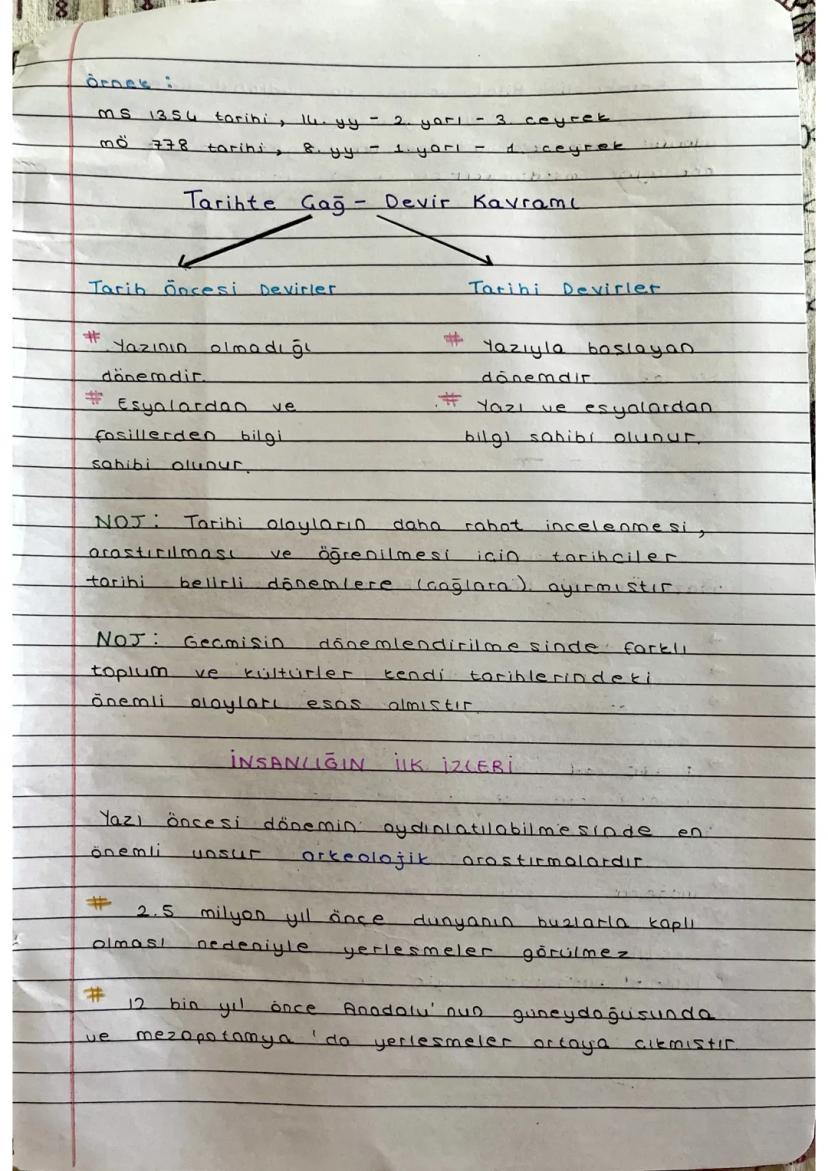 örnek :
MS 1354 tarihi, 14. yy - 2. yarı - 3. ceyrek
MÖ 778 tarihi, 8. yy - 1. yarı - 1. ceyrek
Tarihte Çağ - Devir Kavramı
Tarih Öncesi Devirler
Tarihi Devirler
# Yazının olmadığı
dönemdir.
# Esyalardan ve
fosillerden bilgi
sahibi olunur.
# Yazıyla baslayan
dönemdir.
# Yazı ve esyalardan
bilgi sahibi olunur.
NOT: Tarihi olayların daha rahat incelenmesi,
arastırılması ve öğrenilmesi icin tarihciler
tarihi belirli dönemlere (cağlara) ayırmıstır.
NOT: Gecmisin dönemlendirilmesinde farklı
toplum ve kültürler kendi tarihlerindeki
önemli olayları esas almıstır.
İNSANLIĞIN İLK İZLERİ
Yazı öncesi dönemin aydınlatılabilmesinde en
önemli unsur arkeolojik arastırmalardır.
# 2.5 milyon yıl önce dunyanın buzlarla kaplı
olması nedeniyle yerlesmeler görülmez.
# 12 bin yıl önce Anadolu'nun güneydoğusunda
ve mezopotamya'da yerlesmeler ortaya cıkmıstır.